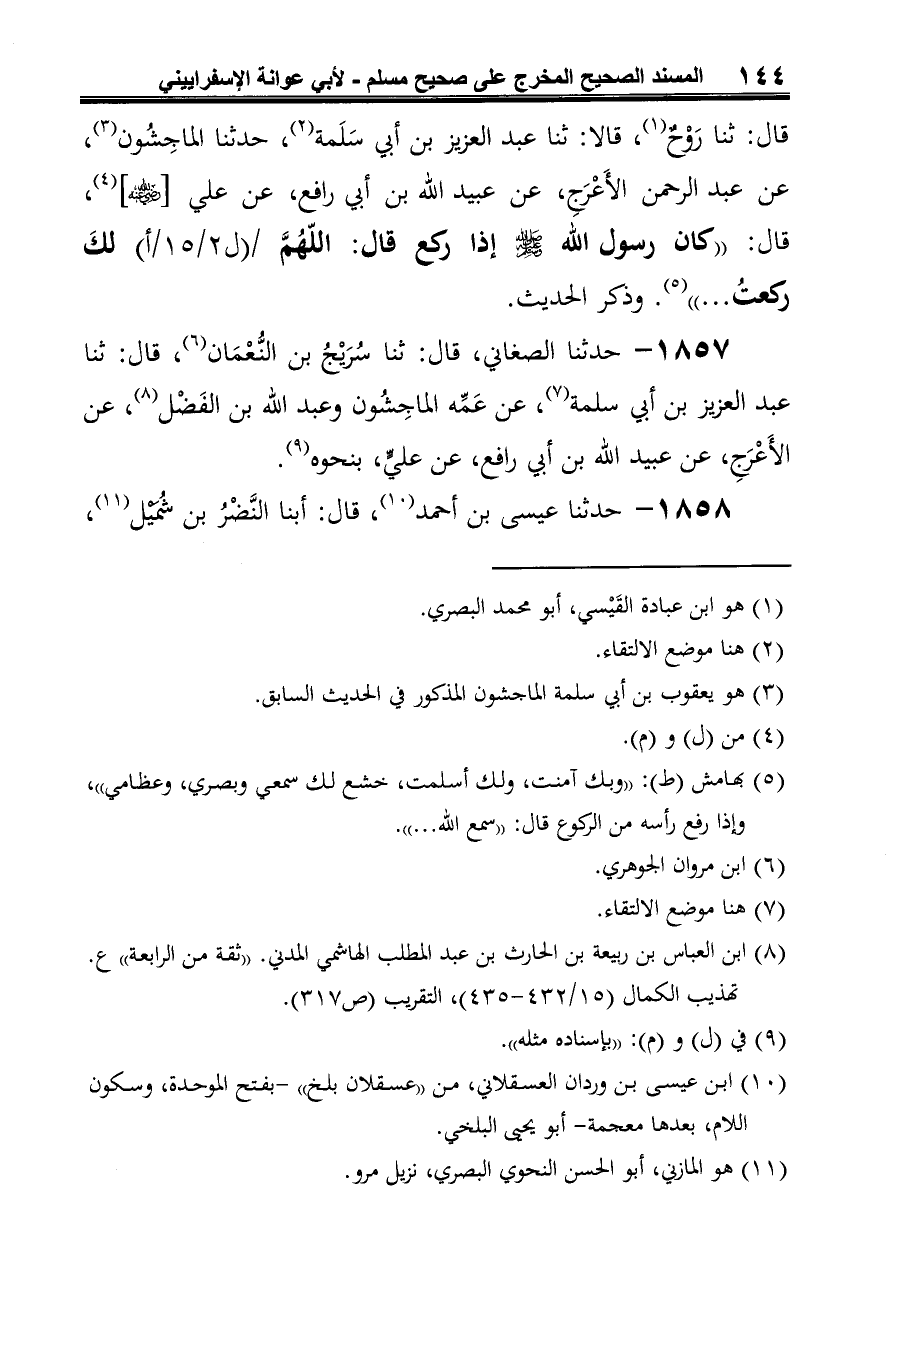 ١٤٤ المسند الصحيح المخرج على صحيح مسلم - لأبي عوانة الإسفراييني
قال: ثنا رَوْحٌ(١)، قالا: ثنا عبد العزيز بن أبي سَلَمة(٢)، حدثنا الماجِشُون(٣)،
عن عبد الرحمن الأَعْرَجِ، عن عبيد الله بن أبي رافع، عن علي [رضي الله عنه](٤)،
قال: ((كان رسول الله ﷺ إذا ركع قال: اللّهُمَّ /(ل١٥/٢/أ) لكَ
ركعتُ...))(٥). وذكر الحديث.
١٨٥٧- حدثنا الصغاني، قال: ثنا سُرَيْجُ بن النُّعْمَان(٦)، قال: ثنا
عبد العزيز بن أبي سلمة(٧)، عن عَمِّه الماجِشُون وعبد الله بن الفَضْل(٨)، عن
الأَعْرَجِ، عن عبيد الله بن أبي رافع، عن عليٍّ، بنحوه(٩).
١٨٥٨- حدثنا عيسى بن أحمد(١٠)، قال: أبنا النَّضْرُ بن شُمَيْل(١١)،
(١) هو ابن عبادة القَيْسي، أبو محمد البصري.
(٢) هنا موضع الالتقاء.
(٣) هو يعقوب بن أبي سلمة الماجشون المذكور في الحديث السابق.
(٤) من (ل) و (م).
(٥) بهامش (ط): ((وبك آمنت، ولك أسلمت، خشع لك سمعي وبصري، وعظامي))،
وإذا رفع رأسه من الركوع قال: ((سمع الله...)).
(٦) ابن مروان الجوهري.
(٧) هنا موضع الالتقاء.
(٨) ابن العباس بن ربيعة بن الحارث بن عبد المطلب الهاشمي المدني. ((ثقة من الرابعة)) ع.
تهذيب الكمال (٤٣٢/١٥-٤٣٥)، التقريب (ص٣١٧).
(٩) في (ل) و (م): ((بإسناده مثله)).
(١٠) ابن عيسى بن وردان العسقلاني، من ((عسقلان بلخ)) -بفتح الموحدة، وسكون
اللام، بعدها معجمة- أبو يحيى البلخي.
(١١) هو المازني، أبو الحسن النحوي البصري، نزيل مرو.